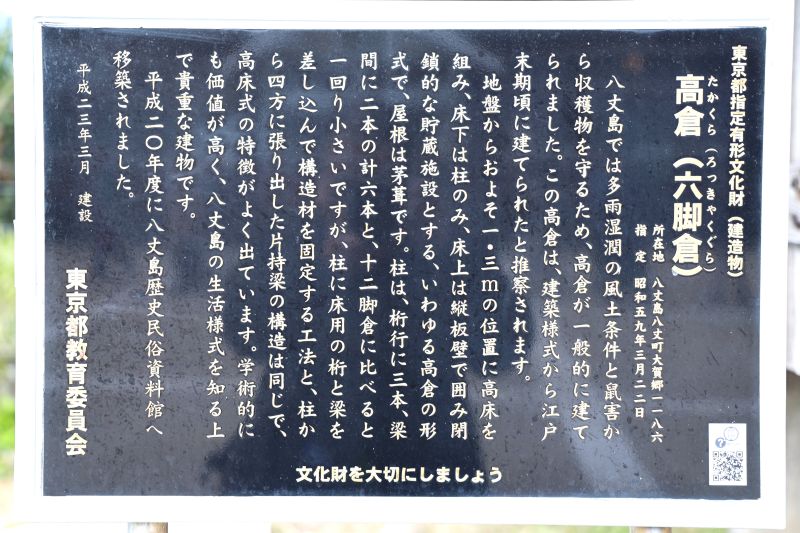 東京都指定有形文化財（建造物）
たかくら（ろっきゃくぐら）
高倉（六脚倉）
所在地　八丈島八丈町大賀郷一一八六
指　定　昭和五九年三月二二日
八丈島では多雨湿潤の風土条件と鼠害か
ら収穫物を守るため、高倉が一般的に建て
られました。この高倉は、建築様式から江戸
末期頃に建てられたと推察されます。
地盤からおよそ一・三mの位置に高床を
組み、床下は柱のみ、床上は縦板壁で囲み閉
鎖的な貯蔵施設とする、いわゆる高倉の形
式で、屋根は茅葺です。柱は、桁行に三本、梁
間に二本の計六本と、十二脚倉に比べると
一回り小さいですが、柱に床用の桁と梁を
差し込んで構造材を固定する工法と、柱か
ら四方に張り出した片持梁の構造は同じで、
高床式の特徴がよく出ています。学術的に
も価値が高く、八丈島の生活様式を知る上
で貴重な建物です。
平成二〇年度に八丈島歴史民俗資料館へ
移築されました。
平成二三年三月　建設
東京都教育委員会
文化財を大切にしましょう